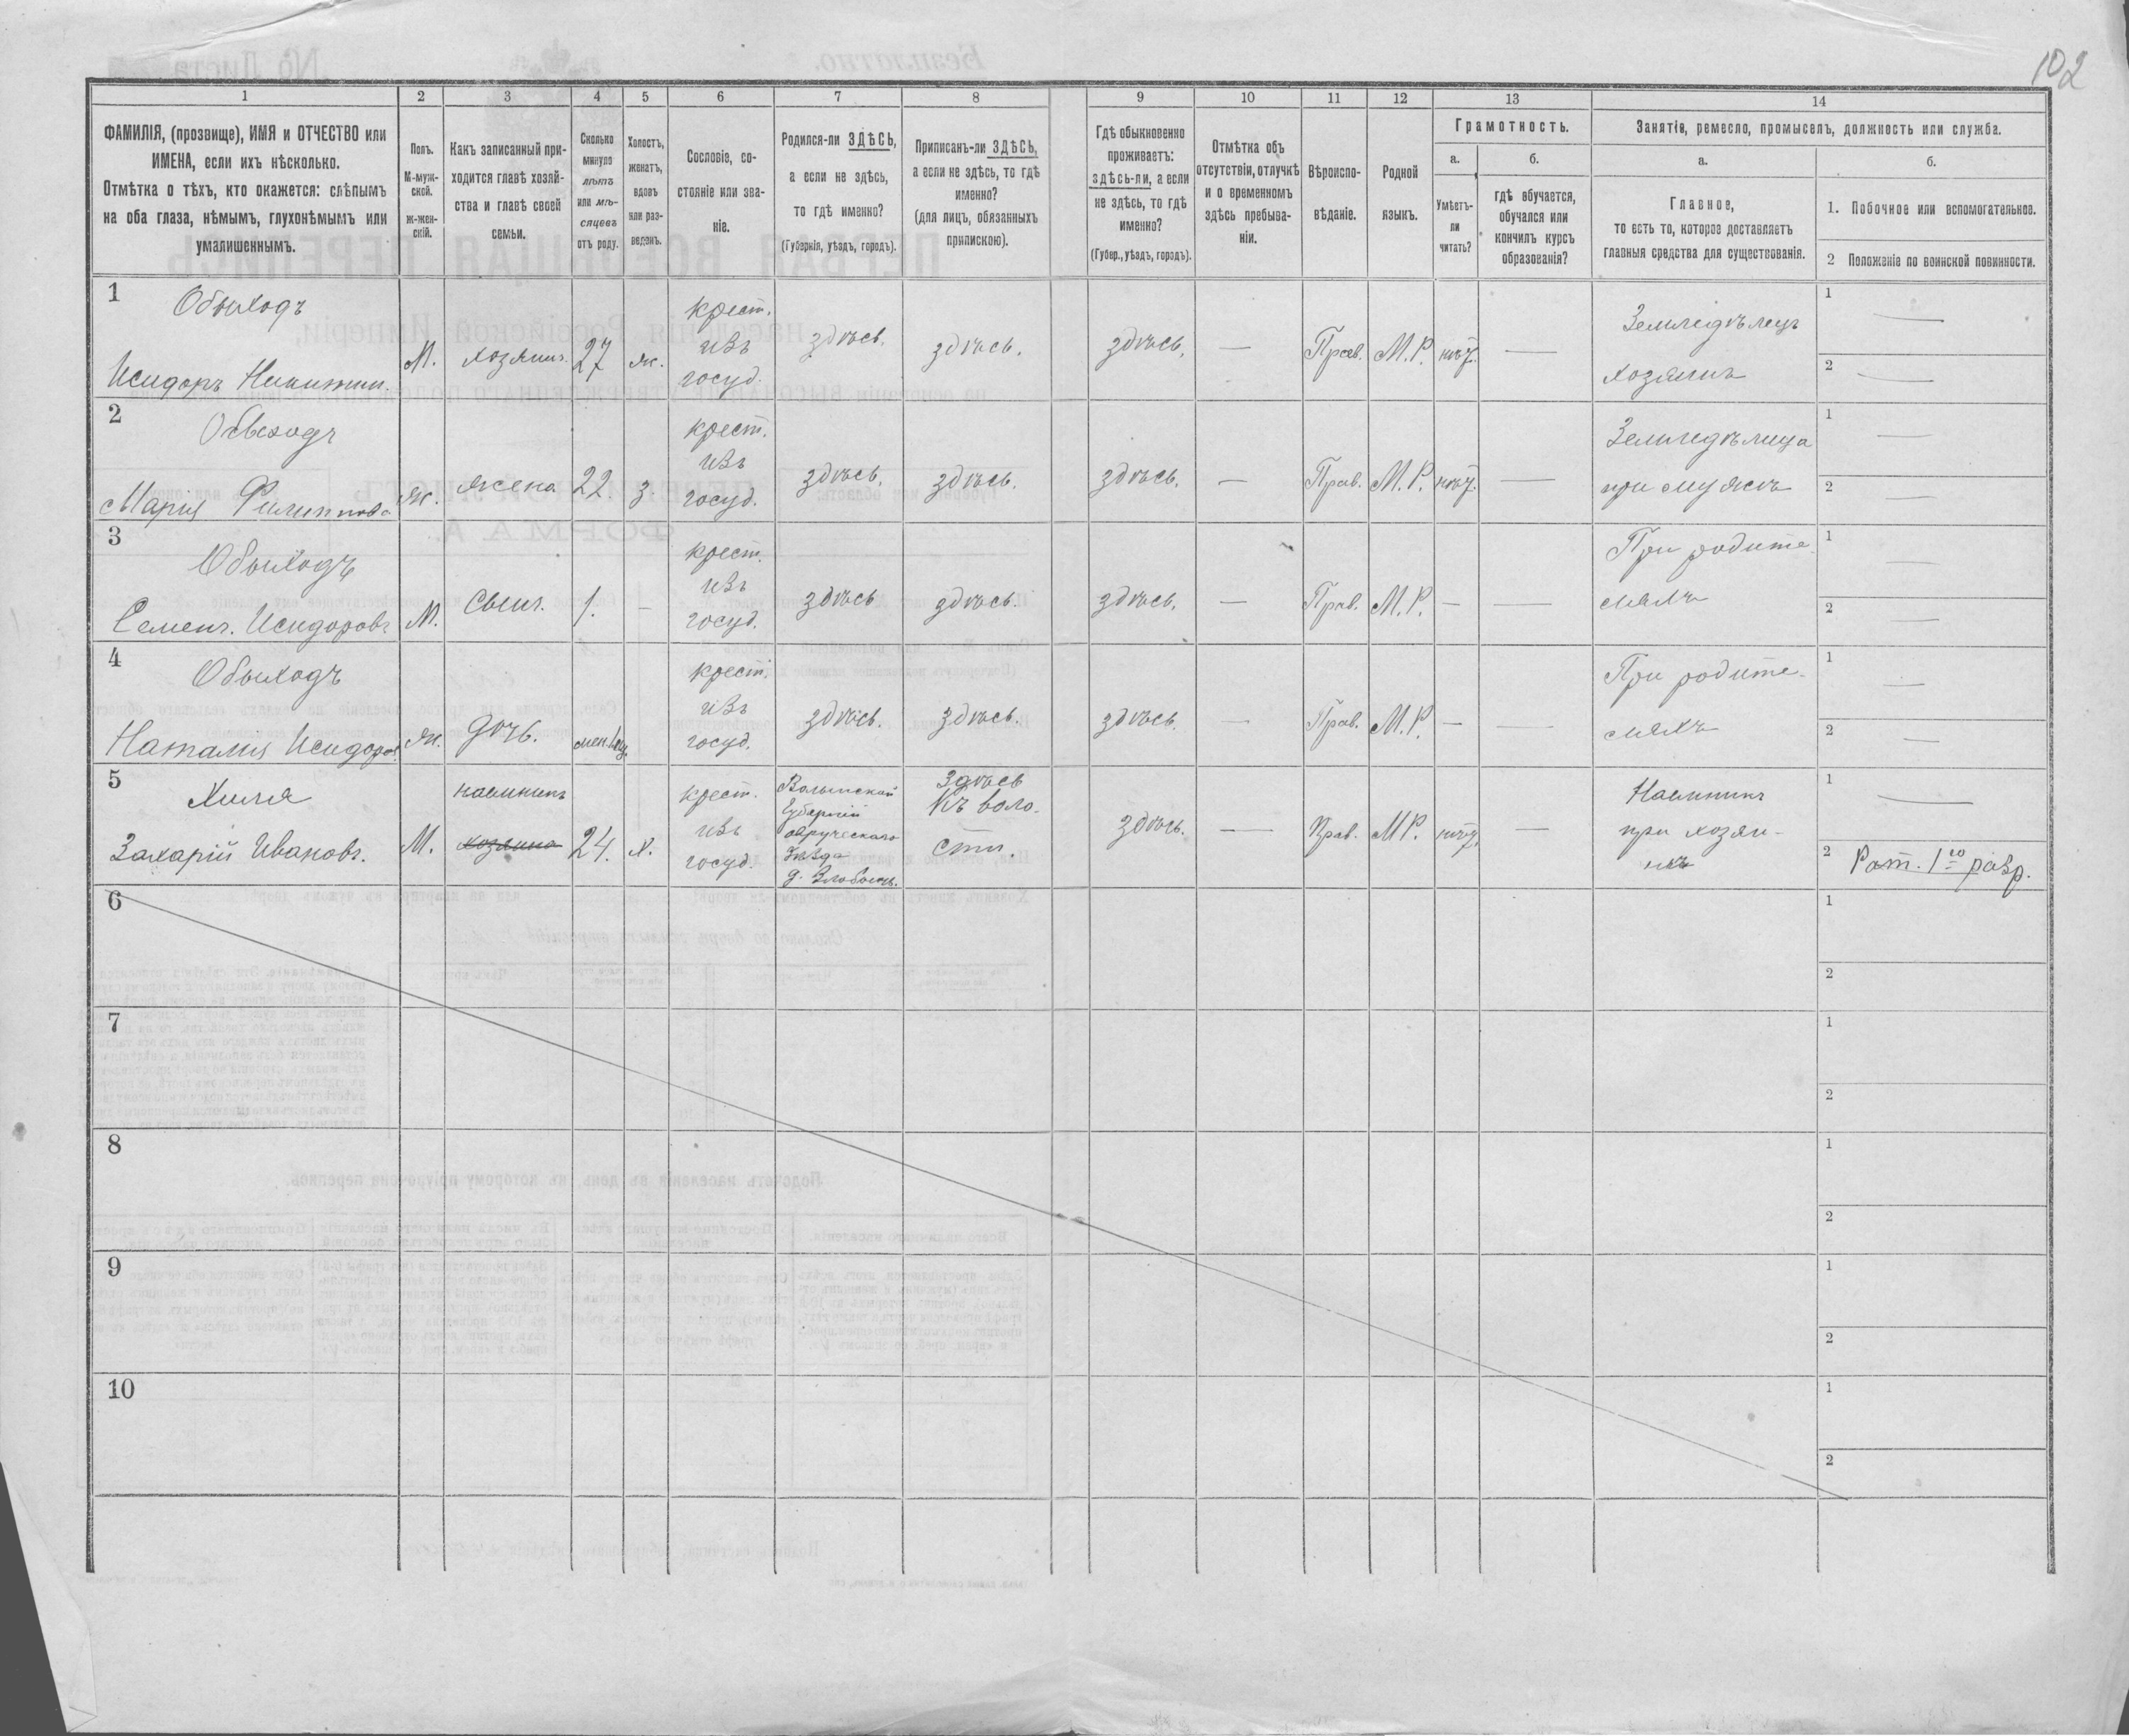 102
1 2 3 4 5 6 7 8 9 10 11 12 13 14
ФАМИЛІЯ, (прозвище), ИМЯ и ОТЧЕСТВО или
ИМЕНА, если ихъ нѣсколько.
Отмѣтка о тѣхъ, кто окажется: слѣпымъ
на оба глаза, нѣмымъ, глухонѣмымъ или
умалишеннымъ.
Полъ.
М-муж-
ской.
ж-жен-
скій.
Какъ записанный при-
ходится главѣ хозяй-
ства и главѣ своей
семьи.
Сколько
минуло
лѣтъ
или мѣ-
сяцевъ
отъ роду.
Холостъ,
женатъ,
вдовъ
или раз-
веденъ.
Сословіе, со-
стояніе или зва-
ніе.
Родился-ли ЗДѢСЬ,
а если не здѣсь,
то гдѣ именно?
(Губернія, уѣздъ, городъ).
Приписанъ-ли ЗДѢСЬ,
а если не здѣсь, то гдѣ
именно?
(для лицъ, обязанныхъ
припискою).
Гдѣ обыкновенно
проживаетъ:
здѣсь-ли, а если
не здѣсь, то гдѣ
именно?
(Губер., уѣздъ, городъ).
Отмѣтка объ
отсутствіи, отлучкѣ
и о временномъ
здѣсь пребыва-
ніи.
Вѣроиспо-
вѣданіе.
Родной
языкъ.
Грамотность.
а.
Умѣетъ-
ли
читать?
б.
гдѣ обучается,
обучался или
кончилъ курсъ
образованія?
Занятіе, ремесло, промыселъ, должность или служба.
а.
Главное,
то есть то, которое доставляетъ
главныя средства для существованія.
б.
1. Побочное или вспомогательное.
2 Положеніе по воинской повинности.
1
Обыходъ
Исидоръ Никитин.
М.
хозяинъ
27
ж.
крест.
изъ
госуд.
здѣсь.
здѣсь.
здѣсь.
—
Прав.
М.Р.
нѣт.
—
Земледѣлецъ
хозяинъ
1 —
2 —
2
Обыходъ
Марія Филиппова
ж.
жена
22.
з.
крест.
изъ
госуд.
здѣсь.
здѣсь.
здѣсь.
—
Прав.
М.Р.
нѣт.
—
Земледѣлица
при мужѣ
1 —
2 —
3
Обыходъ
Семенъ. Исидоровъ
М.
Сынъ.
1.
—
крест.
изъ
госуд.
здѣсь
здѣсь.
здѣсь.
—
Прав.
М.Р.
—
—
При родите
ляхъ
1 —
2 —
4
Обыходъ
Наталия Исидоров.
ж.
дочь.
крест.
изъ
госуд.
здѣсь.
здѣсь.
здѣсь
—
Прав.
М.Р.
—
—
При родите-
ляхъ
1 —
2 —
5
Хиля
Захарій Ивановъ.
М.
наимникъ
хозяина
24.
х.
крест.
изъ
госуд.
Волынской
Губерніи
овручскаго
Уѣзда
Здѣсь
Къ воло-
сти.
здѣсь.
—
Прав.
М.Р.
нѣт.
—
Наимникъ
при хозяи-
нѣ
1 —
2 Рат. 1го разр.
6
1
2
7
1
2
8
1
2
9
1
2
10
1
2